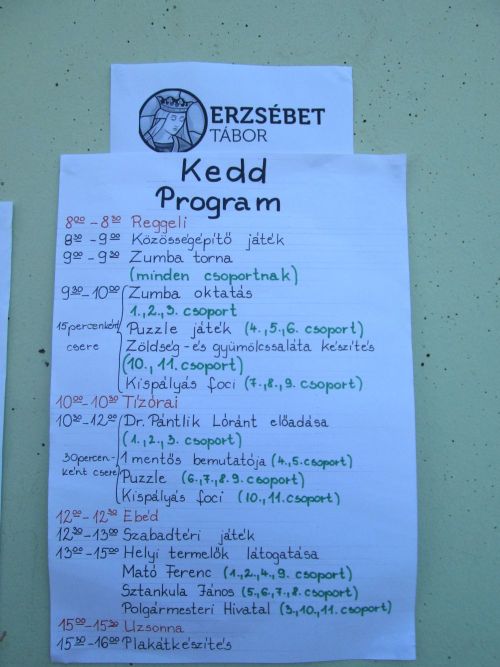 ERZSÉBET
TÁBOR
Kedd
Program
8⁰⁰-8³⁰ Reggeli
8³⁰-9⁰⁰ Közösségépítő játék
9⁰⁰-9³⁰ Zumba torna
(minden csoportnak)
9³⁰-10⁰⁰ Zumba oktatás
1.,2.,3. csoport
15 percenként Puzzle játék (4.,5.,6. csoport)
csere Zöldség-és gyümölcssaláta készítés
(10., 11. csoport)
Kispályás foci (7.,8.,9. csoport)
10⁰⁰-10³⁰ Tízórai
10³⁰-12⁰⁰ Dr. Pántlik Lóránt előadása
(1.,2.,3 csoport)
30 percen- 1 mentős bemutatója (4.,5.csoport)
ként csere Puzzle (6.,7.,8.9. csoport)
Kispályás foci (10.,11.csoport)
12⁰⁰-12³⁰ Ebéd
12³⁰-13⁰⁰ Szabadtéri játék
13⁰⁰-15⁰⁰ Helyi termelők látogatása
Mató Ferenc (1.,2.,4.,9. csoport)
Sztankula János (5.,6.,7.,8. csoport)
Polgármesteri Hivatal (3.,10.,11. csoport)
15⁰⁰-15³⁰ Uzsonna
15³⁰-16⁰⁰ Plakátkészítés